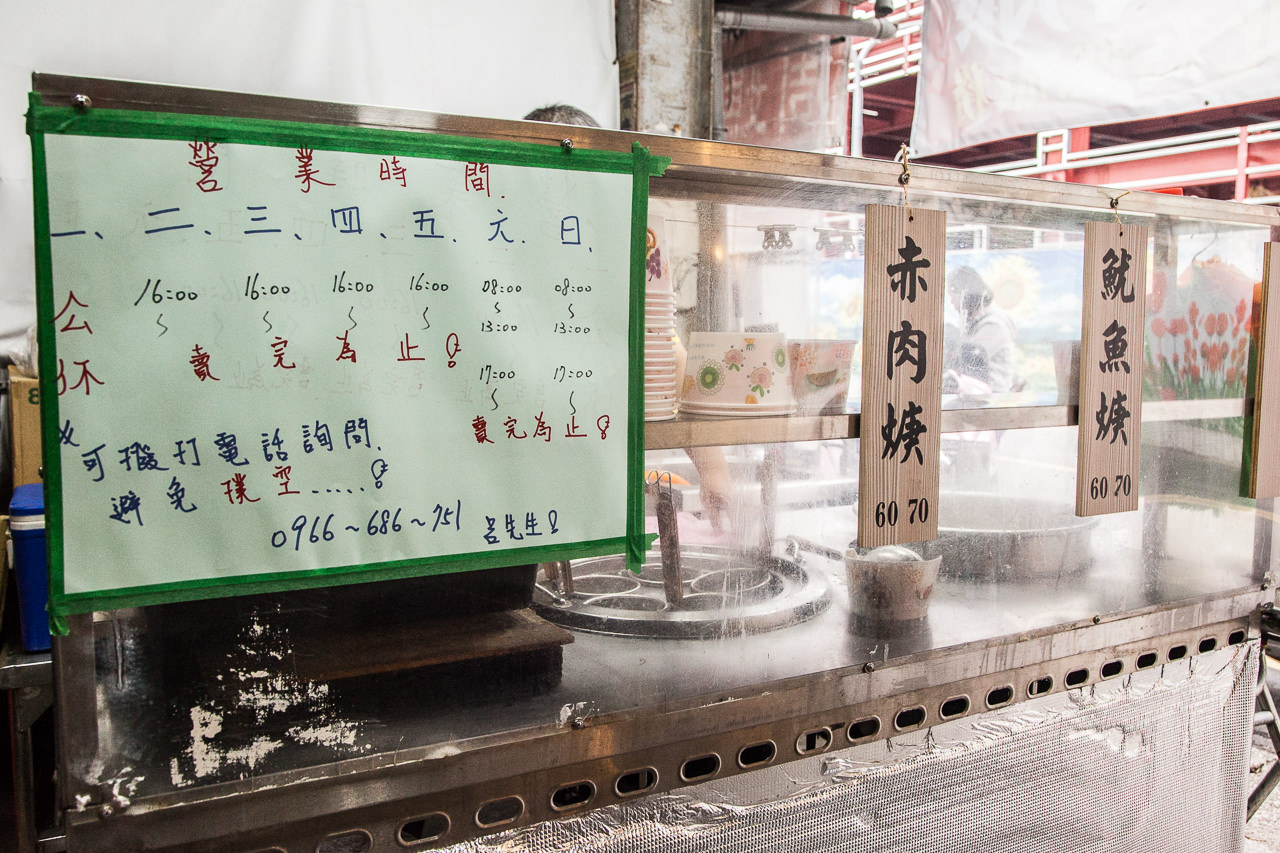 營業時間.
一、二、三、四、五.六.日.
公休
16:00 16:00 16:00 16:00 08:00 08:00
~ ~ ~ ~ ~ ~
13:00 13:00
賣完為止!
17:00 17:00
~ ~
賣完為止!
可撥打電話詢問.
避免撲空.....!
0966~686~751 呂先生!
赤肉焿
60 70
魷魚焿
60 70